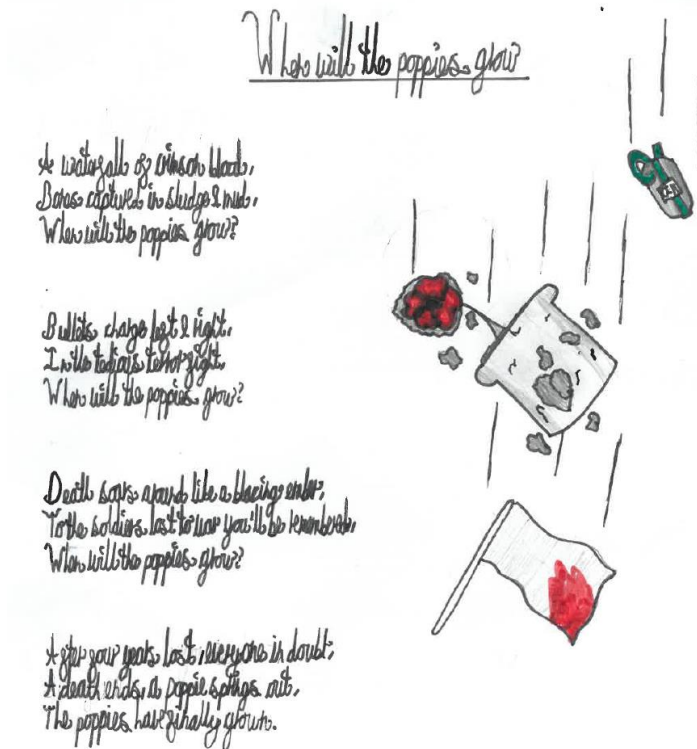 When will the poppies grow?
A waterfall of crimson blood,
Bones captured in sludge & mud,
When will the poppies grow?
Bullets charge left & right,
In the tedious terror fight,
When will the poppies grow?
Death soars around like a blazing ember,
To the soldiers lost to war you'll be remembered,
When will the poppies grow?
After four years lost, everyone in doubt,
A death ends, a poppie springs out,
The poppies have finally grown.